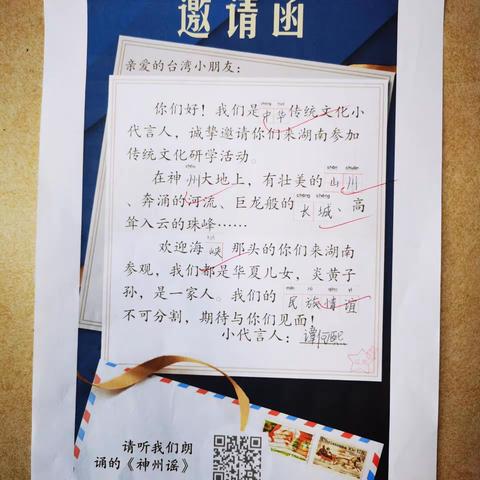 邀请函
亲爱的台湾小朋友：
zhōng huá
你们好！我们是中华传统文化小
代言人，诚挚邀请你们来湖南参加
传统文化研学活动。
zhōu shān chuān
在神州大地上，有壮美的山川
cháng chéng
、奔涌的河流、巨龙般的长城、高
耸入云的珠峰……
xiá
欢迎海峡那头的你们来湖南
参观，我们都是华夏儿女，炎黄子
mín zú qíng yì
孙，是一家人。我们的民族情谊
不可分割，期待与你们见面！
小代言人：
请听我们朗
诵的《神州谣》